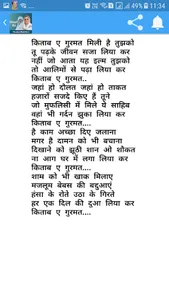 11:34
किताब ए गुरमत मिली है तुझको
तू पढ़के जीवन सजा लिया कर
नहीं जो आता यह इल्म तुझको
तो आलिमों से पढ़ा लिया कर
किताब ए गुरमत ..
जहां हो दौलत जहां हो ताकत
हजारों सजदे किए हैं तूने
जो मुफलिसी में मिले ये साहिब
वहां भी गर्दन झुका लिया कर
किताब ए गुरमत....
है काम अच्छा दिए जलाना
मगर है दामन को भी बचाना
दिखाने को झूठी शान ओ शौकत
ना आग घर में लगा लिया कर
किताब ए गुरमत....
शाम को भी खाक मिलाए
मजलूम बेबस की बद्दुआएं
हंसा के रोते उठा के गिरते
हर एक दिल की दुआ लिया कर
किताब ए गुरमत....